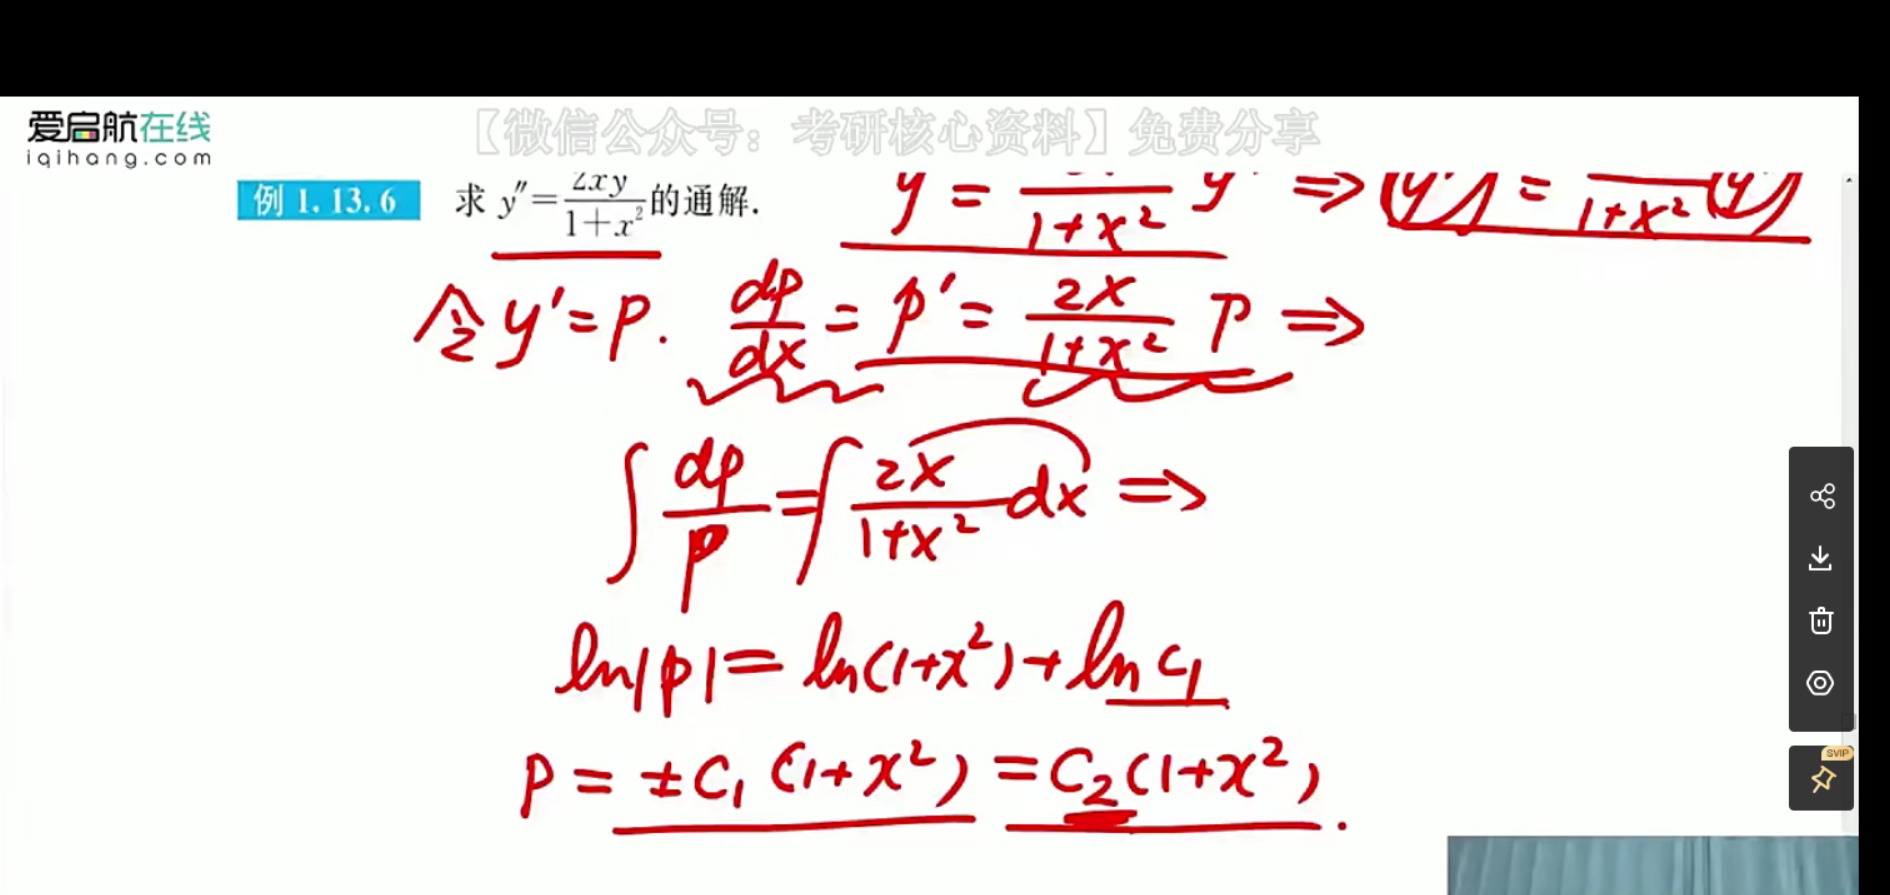 爱启航在线
iqihang.com
【微信公众号：考研核心资料】免费分享
例 1.13.6 求 y″=2xy/(1+x²) 的通解.
y = /(1+x²) y ⇒ (y') = /(1+x²) (y')
令 y'=p. dp/dx = p' = 2x/(1+x²) p ⇒
∫ dp/p = ∫ 2x/(1+x²) dx ⇒
ln|p| = ln(1+x²) + ln C₁
p = ±C₁(1+x²) = C₂(1+x²).
SVIP